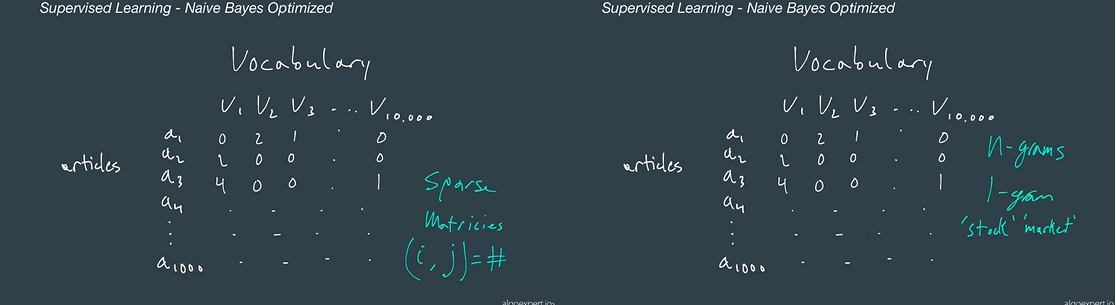 Supervised Learning - Naive Bayes Optimized
Vocabulary
V1 V2 V3 ... V10,000
a1 0 2 1 . 0
articles a2 2 0 0 . 0
a3 4 0 0 . 1
a4 . . . .
⋮ . - . .
a1000 . - . .
Sparse
Matricies
(i, j) = #
algoexpert.io
Supervised Learning - Naive Bayes Optimized
Vocabulary
V1 V2 V3 ... V10,000
a1 0 2 1 . 0
articles a2 2 0 0 . 0
a3 4 0 0 . 1
a4 . . . .
⋮ . - . .
a1000 . - . .
n-grams
1-gram
'stock' 'market'
algoexpert.io